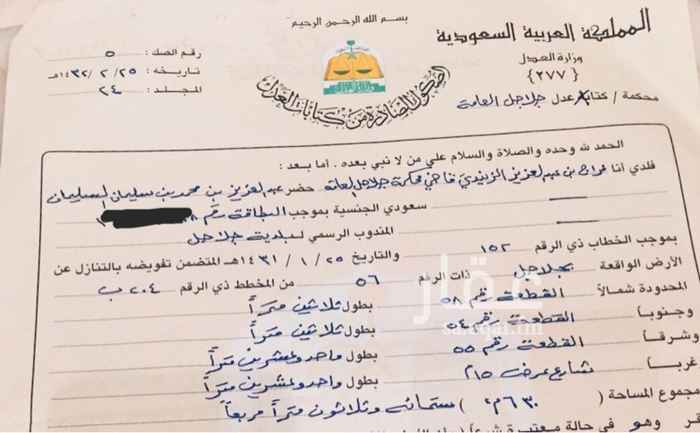 بسم الله الرحمن الرحيم
المملكة العربية السعودية
وزارة العدل
{٢٧٧}
محكمة / كتابة عدل جلاجل العامة
الصكوك الصادرة من كتابات العدل
رقم الصك : ٥
تاريخه : ٢٥ / ٢ / ١٤٣٢هـ
المجلد : ٢٤
الحمد لله وحده والصلاة والسلام على من لا نبي بعده . أما بعد :
فلدي أنا بن عبدالعزيز الزنيدي قاضي محكمة جلاجل العامة حضر عبدالعزيز بن محمد بن سليمان السليمان
سعودي الجنسية بموجب البطاقة رقم
المندوب الرسمي لبلدية جلاجل
بموجب الخطاب ذي الرقم ١٥٢ والتاريخ ٢٥ / ١ / ١٤٣١هـ المتضمن تفويضه بالتنازل عن
الأرض الواقعة بجلاجل ذات الرقم ٥٦ من المخطط ذي الرقم ٢٠٤ ب
المحدودة شمالاً القطعة رقم ٥٨ بطول ثلاثين متراً
وجنوباً القطعة رقم ٥٤ بطول ثلاثين متراً
وشرقاً القطعة رقم ٥٥ بطول واحد وعشرين متراً
غرباً شارع عرض ١٥م بطول واحد وعشرين متراً
مجموع المساحة ( ٦٣٠م٢ ) ستمائة وثلاثون متراً مربعاً
وهو في حالة معتبرة شرعاً
عقار
saaqar.fm